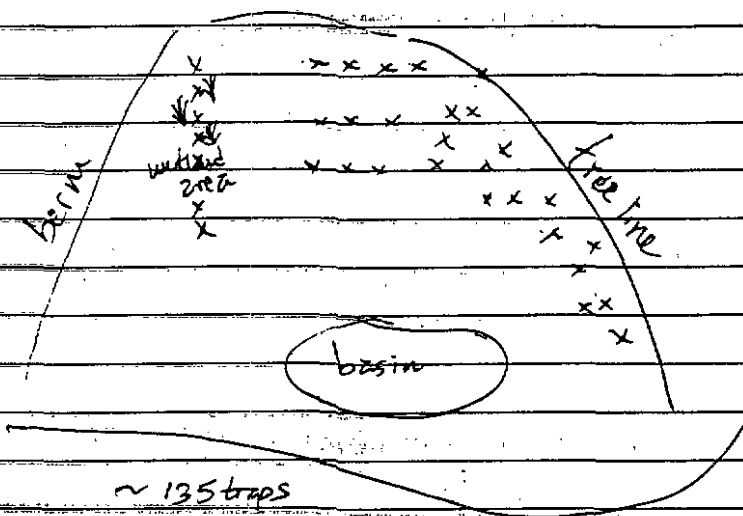 berm
wetland
area
tree line
basin
~ 135 traps